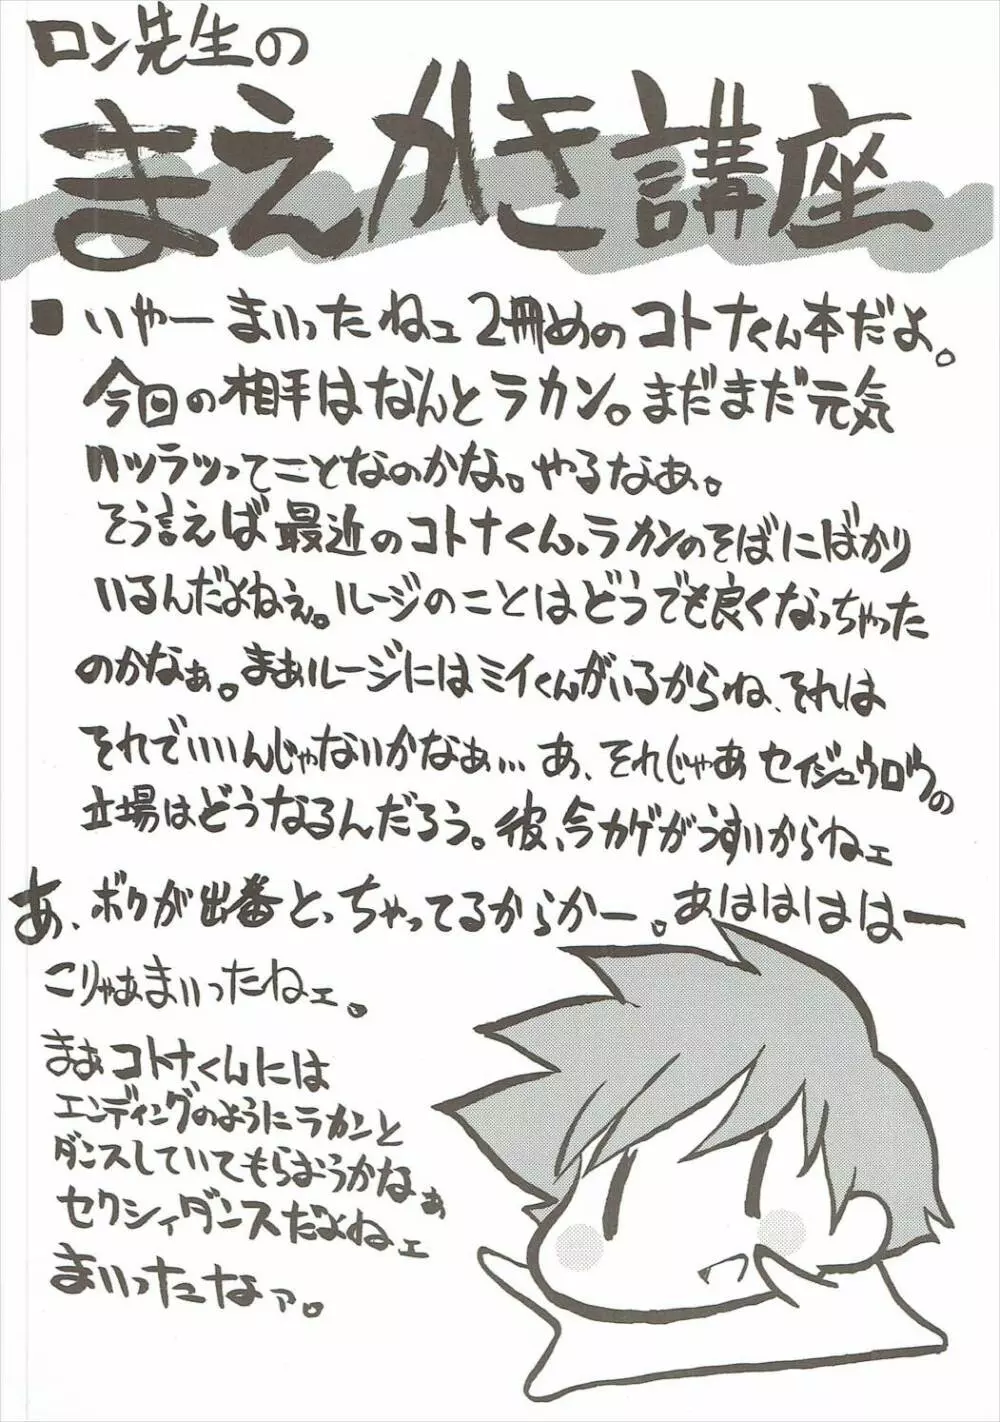 ロン先生の
まえがき講座
■ いやー まいったねェ 2冊めの コトナくん本だよ。
今回の相手はなんとラカン。まだまだ元気
ハツラツってことなのかな。やるなぁ。
そう言えば最近のコトナくん、ラカンのそばにばかり
いるんだよねぇ。ルージのことはどうでも良くなっちゃった
のかなぁ。まぁルージにはミイくんがいるからね、それは
それでいいんじゃないかなぁ… あ、それじゃあ セイジュウロウの
立場はどうなるんだろう。彼、今カゲがうすいからねェ
あ、ボクが出番とっちゃってるからかー。あはははは―
こりゃあまいったねェ。
まぁ コトナくんには
エンディングのようにラカンと
ダンスしていてもらおうかなぁ
セクシィダンスだよねェ
まいったなァ。